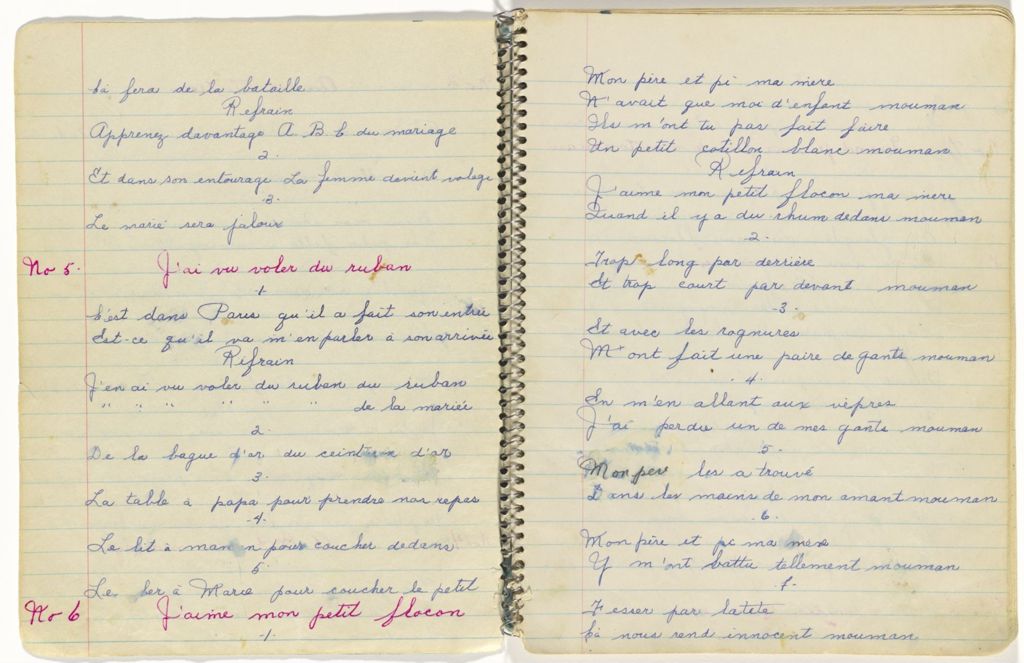 Ça fera de la bataille
Refrain
Apprenez davantage A B C du mariage
2.
Et dans son entourage La femme devient volage
.3.
Le marié sera jaloux
No 5. J'ai vu voler du ruban
1
C'est dans Paris qu'il a fait son entrée
Est-ce qu'il va m'en parler à son arrivée
Refrain
J'en ai vu voler du ruban du ruban
" " " " " " de la mariée
2.
De la bague d'or du ceinturon d'or
3.
La table à papa pour prendre nos repas
-4.
Le lit à maman pour coucher dedans
5
Le ber à Marie pour coucher le petit
No 6 J'aime mon petit flocon
-1.
Mon père et pi ma mère
N'avait que moi d'enfant mouman
Ils m'ont tu pas fait faire
Un petit cotillon blanc mouman
Refrain
J'aime mon petit flocon ma mère
Quand il y a du rhum dedans mouman
-2-
Trop long par derrière
Et trop court par devant mouman
-3-
Et avec les rognures
M'ont fait une paire de gants mouman
.4.
En m'en allant aux vêpres
J'ai perdu un de mes gants mouman
5.
Mon per les a trouvé
Dans les mains de mon amant mouman
.6.
Mon père et pi ma mère
Y m'ont battu tellement mouman
-7-
Fesser par la tête
Ça nous rend innocent mouman